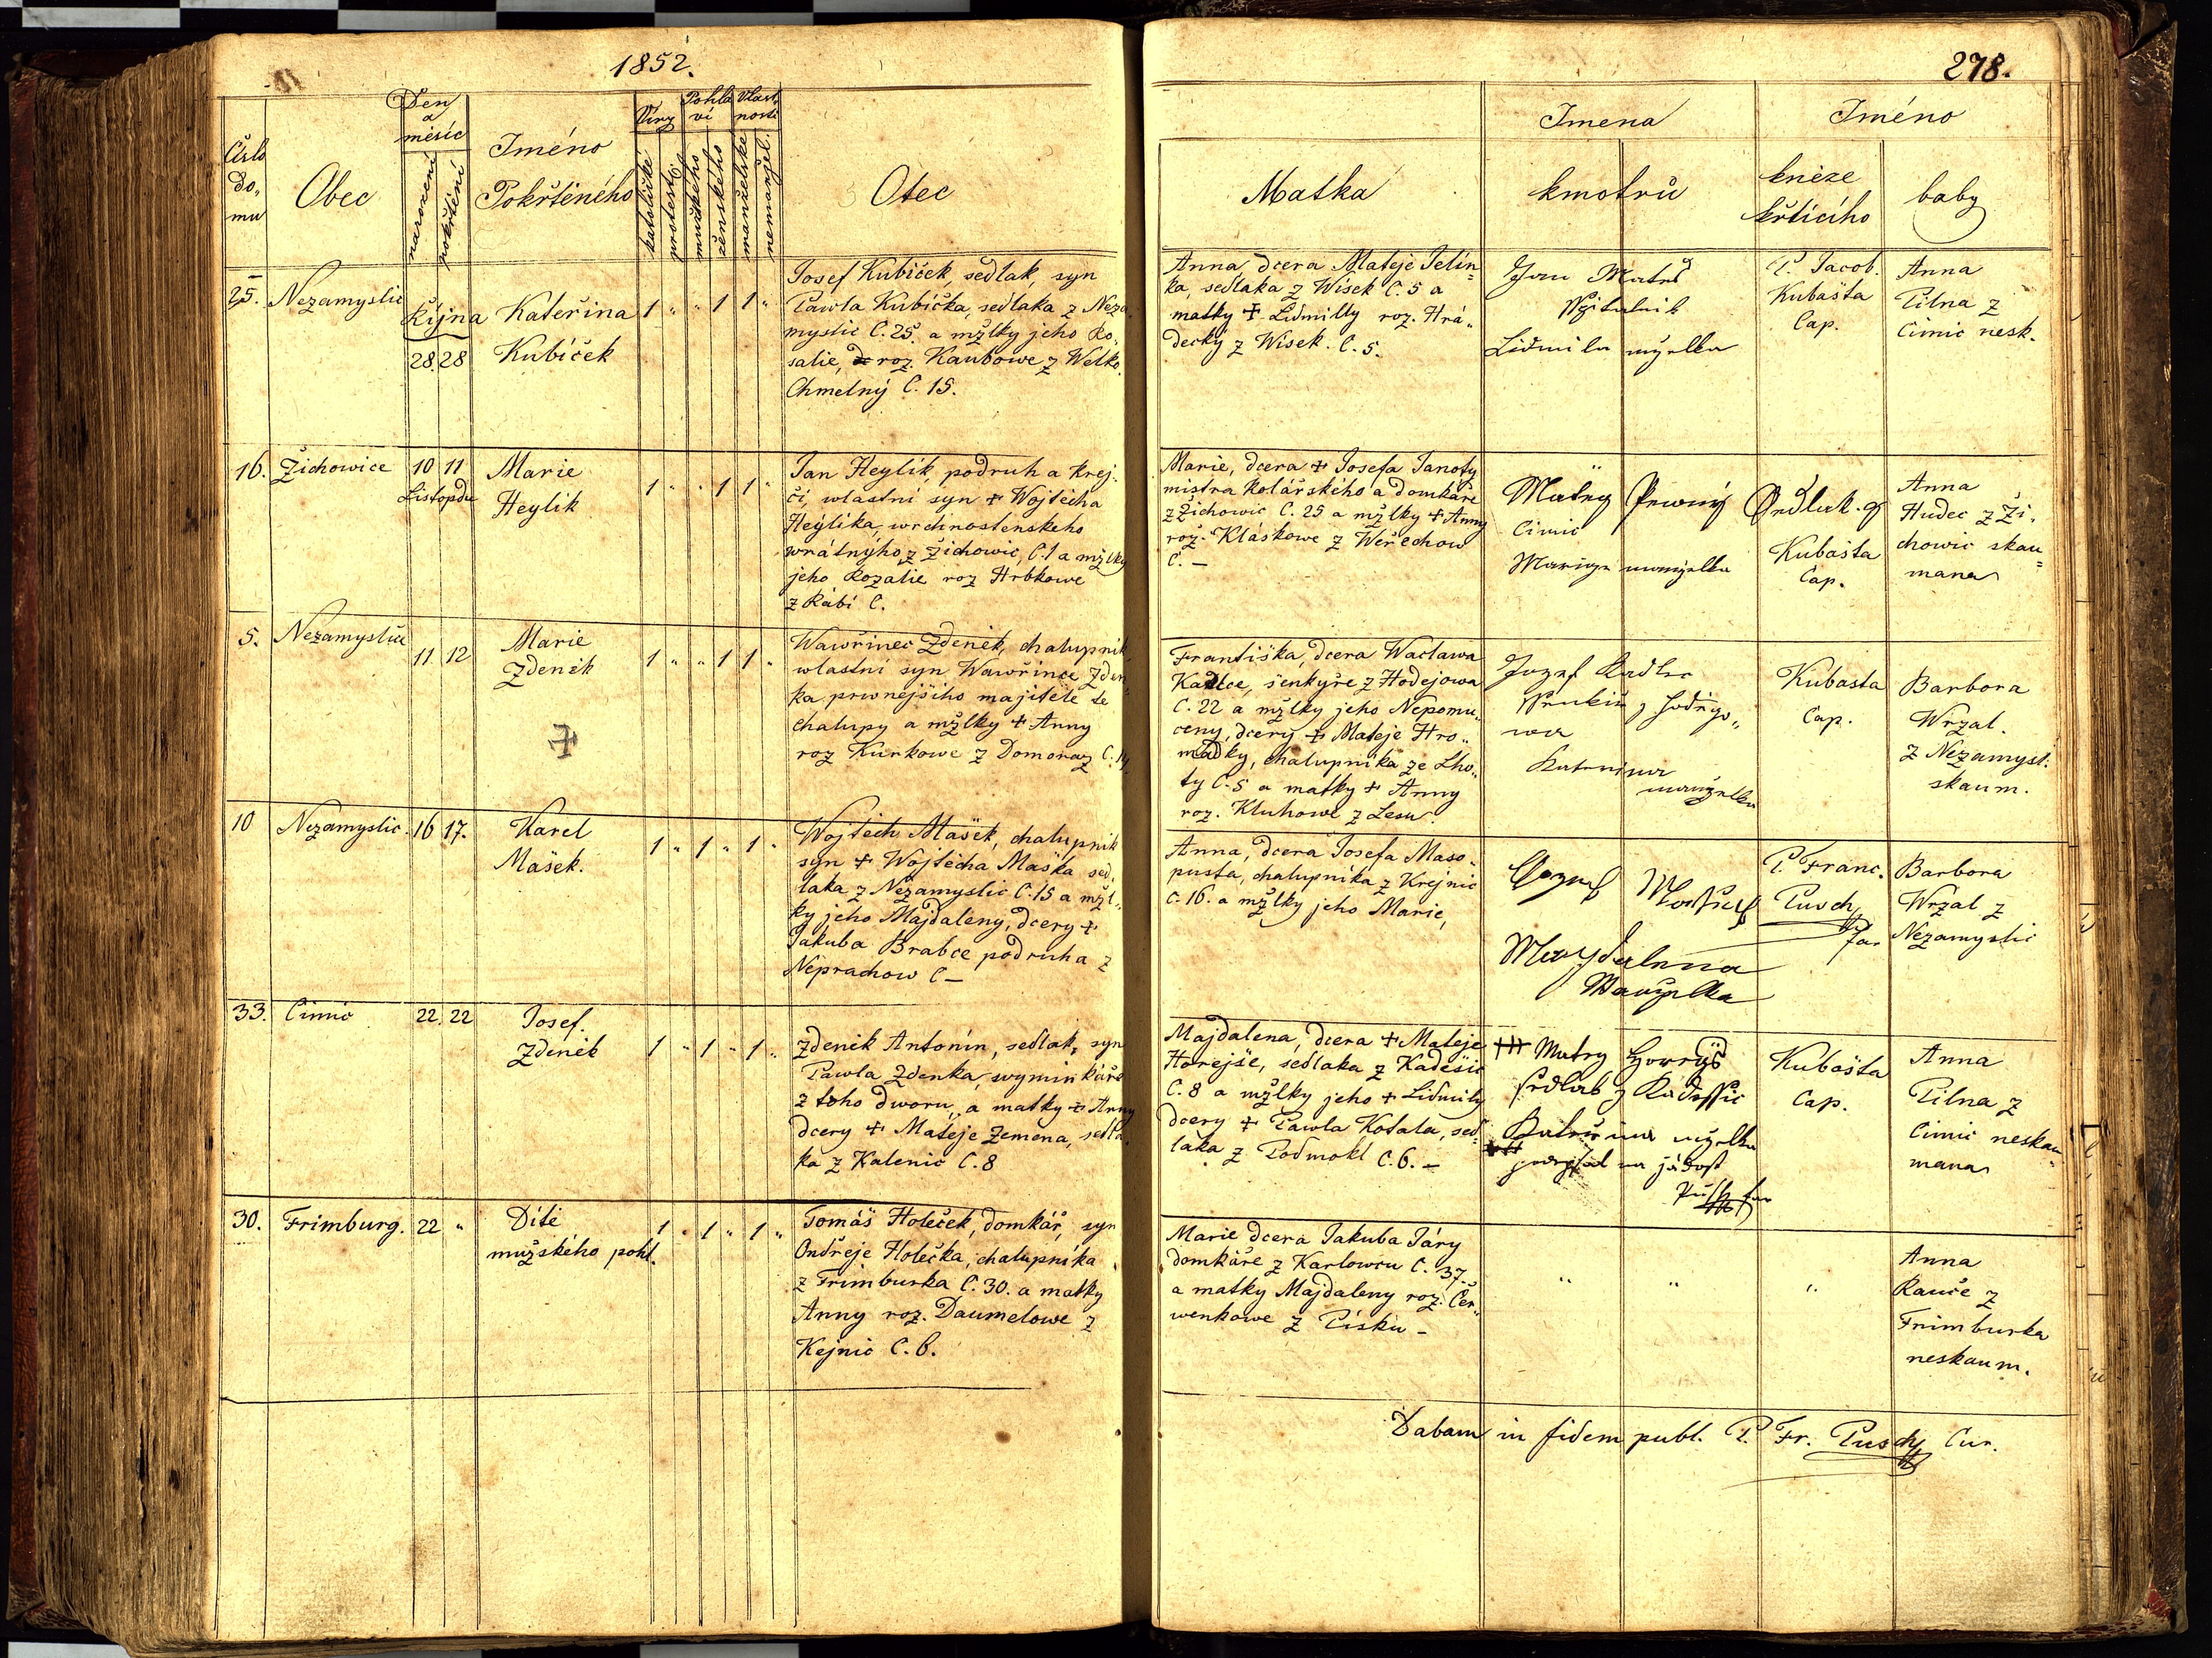 1852.
278.
Číslo
do-
mu
Obec
Den
a
měsíc
narození
pokřtění
Iméno
Pokřtěného
Víry
katolické
protest.
Pohla
ví
mužského
ženského
Vlast
nosti
manželské
nemanžel.
Otec
Matka
Imena
kmotrů
Iméno
kněze
křtícího
baby
25. Nezamyslic
Října
28 28
Kateřina
Kubíček
1 " " 1 1 "
Josef Kubíček, sedlak, syn
Pawla Kubíčka, sedlaka z Neza
myslic C. 25. a mžlky jeho Ro-
salie, roz. Kaubowe z Welko.
Chmelný C. 15.
Anna, dcera Matěje Jelín
ka, sedlaka z Wisek C. 5 a
matky + Lidmilly roz. Hrá"
decký z Wisek. C. 5.
Jan
Lidmila
P. Jacob.
Kubašta
Cap.
Anna
Pilna z
Cimic nesk.
16. Žichowice
10 11
Listopdu
Marie
Heylik
1 " " 1 1 "
Jan Heylík, podruh a krej-
čí, wlastní syn + Wojtěcha
Heylíka, wrchnostenskeho
wrátnýho z Žichowic, C. 1 a mžlky
jeho Rozalie roz Hrbkowe
z Rábí C.
Marie, dcera + Josefa Janoty
mistra kolářského a domkáře
z Žichowic C. 25 a mžlky + Anny
roz. Kláskowe z Weřechow
C. –
Matěy Prwný
Cimic
Mariya manzelka
Kubašta
Cap.
Anna
Hudec z Ži-
chowic skau
mana
5. Nezamyslic
11 12
Marie
Zdeněk
+
1 " " 1 1 "
Wawřinec Zdeněk, chalupník
wlastní syn Wawřince Zden
ka prwnějšiho majitele te
chalupy a mžlky + Anny
roz Kurkowe z Domoraz C. 14.
Františka, dcera Waclawa
Kadlce, šenkýře z Hodějowa
C. 22 a mžlky jeho Nepomu"
ceny, dcery + Matěje Hro"
madky, chalupníka ze Lho"
ty C. 5 a matky + Anny
roz. Kluhowe z Lesu.
Jozef Kadlec
wa
Kateřina
manželka
Kubasta
Cap.
Barbora
Wrzal.
z Nezamysl.
skaum.
10 Nezamyslic.
16 17.
Karel
Mašek.
1 " 1 " 1 "
Wojtěch Mašek, chalupník
syn + Wojtěcha Maška sed-
laka z Nezamyslic C. 15 a mžl-
ky jeho Majdaleny, dcery +
Jakuba Brabce podruha z
Neprachow C –
Anna, dcera Josefa Maso-
pusta, chalupníka z Krejnic
C. 16. a mžlky jeho Marie,
Majdalena
Manželka
P. Franc.
Pusch
far
Barbora
Wrzal z
Nezamyslic
33. Cimic
22. 22
Josef.
Zdeněk
1 " 1 " 1 "
Zdeněk Antonín, sedlak, syn
Pawla Zdenka, wyminkáře
z toho dworu, a matky + Anny
dcery + Matěje Zemena, sedla-
ka z Kalenic C. 8
Majdalena, dcera + Matěje
Hořejše, sedlaka z Kadešic
C. 8 a mžlky jeho + Lidmily
dcery + Pawla Kotala, sed=
laka z Podmokl C. 6. –
+++ Matěy Horeyš
sedlak z Kadessic
Kateřina mželka
podepsal na žádost
Pusch far
Kubašta
Cap.
Anna
Pilna z
Cimic neskau
mana
30. Frimburg.
22 "
Dítě
mužského pohl.
1 " 1 " 1 "
Tomáš Holeček, domkář, syn
Ondřeje Holečka, chalupníka
z Frimburka C. 30. a matky
Anny roz. Daumelowe z
Kejnic C. 6.
Marie dcera Jakuba Járy
domkáře z Karlowcu C. 37.
a matky Majdaleny roz. Čer"
wenkowe z Písku –
" " "
Anna
Rauče z
Frimburka
neskaum.
Dabam in fidem publ. P. Fr. Pusch Cur.